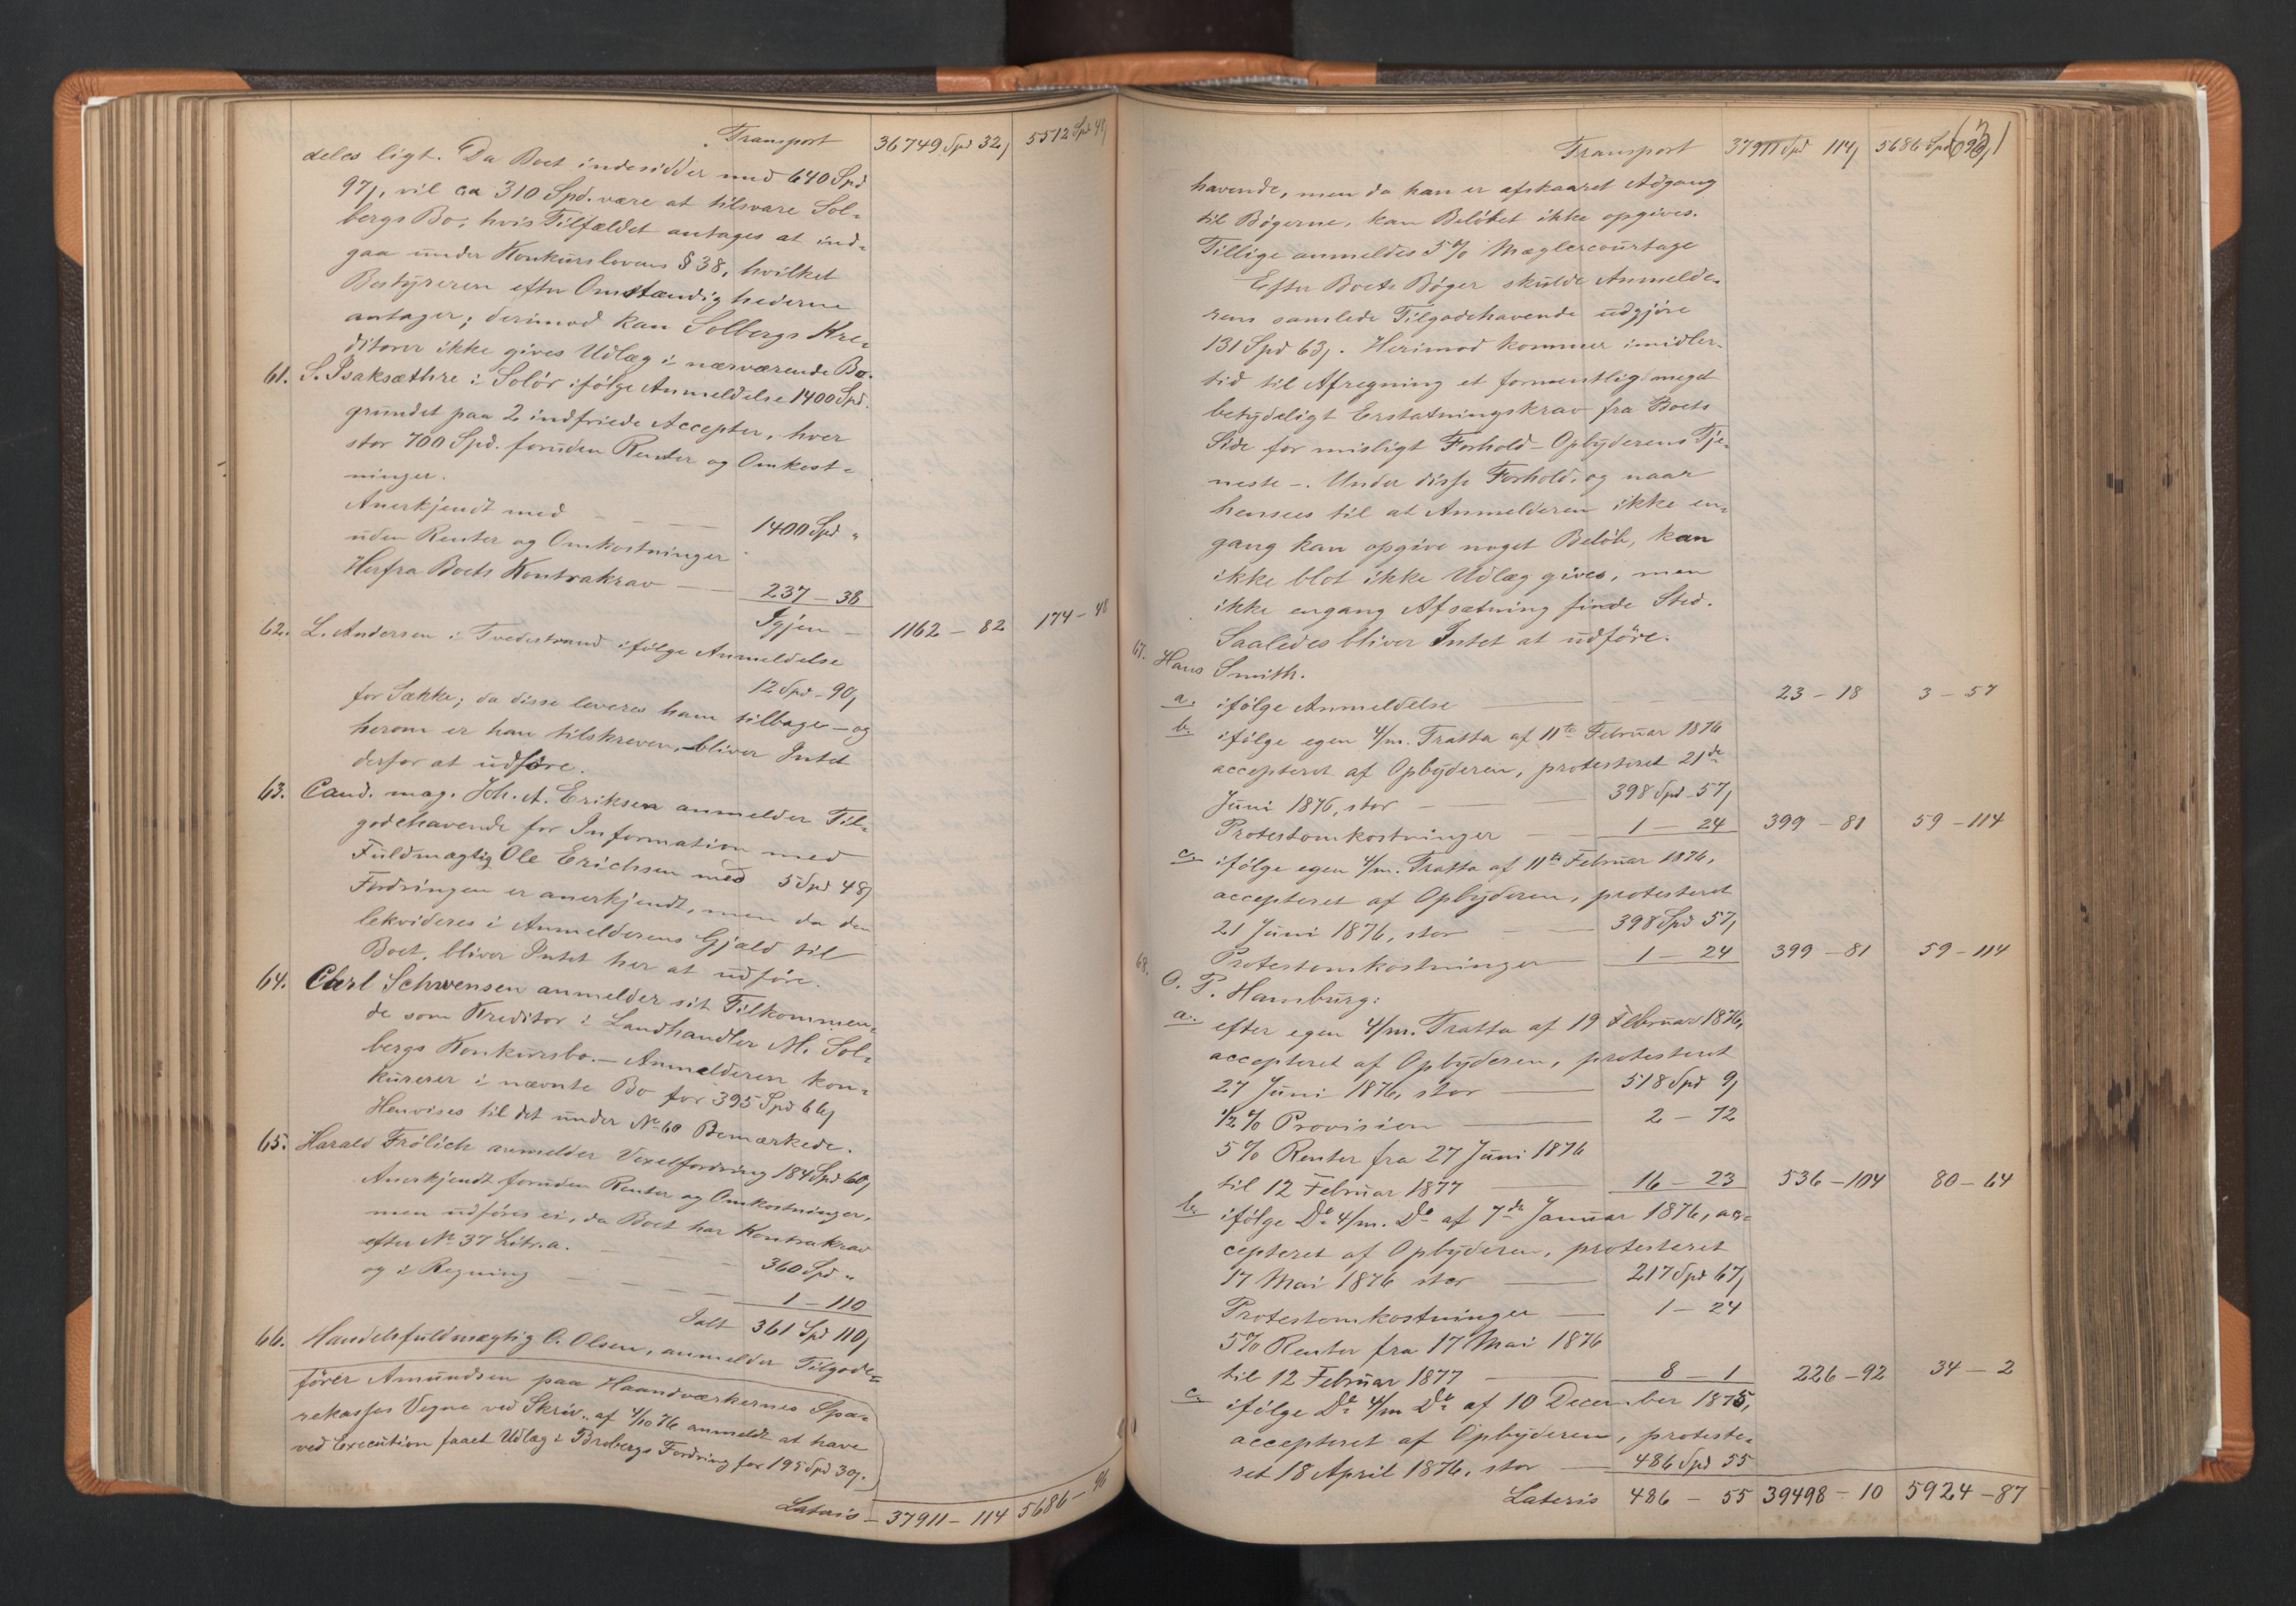 Transport 36749 Spd 32, 5512 Spd 48,
deles ligt. Da Boet indesidder med 640 Spd
97, vil ca 310 Spd. være at tilsvare Sol-
bergs Bo, hvis Tilfældet antages at ind-
gaa under Konkurslovens § 38, hvilket
Bestyreren efter Omstændighederne
antager; derimod kan Solbergs Kre-
ditorer ikke gives Udlæg i nærværende Bo.
61. S. Isaksæthre i Solör ifölge Anmeldelse 1400 Spd.
grundet paa 2 indfriede Accepter, hver
stor 700 Spd. foruden Renter og Omkost-
ninger.
Anerkjendt med - - - 1400 Spd "
uden Renter og Omkostninger
Herfra Boets Kontrakrav - 237 - 38
Igjen - 1162 - 82 174 - 48
62. L. Andersen i Tvedestrand ifölge Anmeldelse
12 Spd - 90,
for Sække; da disse leveres ham tilbage - og
herom er han tilskreven, - bliver Intet
derfor at udföre.
63. Cand. mag. Joh. A. Eriksen anmelder Til-
godehavende for Information med
Fuldmægtig Ole Erichsen med 5 Spd 48,
Fordringen er anerkjendt, men da den
lekvideres i Anmelderens Gjæld til
Boet, bliver Intet her at udföre.
64. Carl Schwensen anmelder sit Tilkommen-
de som Kreditor i Landhandler M. Sol-
bergs Konkursbo. - Anmelderen kon-
kurerer i nævnte Bo for 395 Spd 66,
Henvises til det under No 60 Bemærkede.
65. Harald Frölich anmelder Vexelfordring 184 Spd 60,
Anerkjendt foruden Renter og Omkostninger,
men udföres ei, da Boet har Kontrakrav
efter No 37 Litr. a. - - 360 Spd "
og i Regning - - - 1 - 110
Ialt 361 Spd 110,
66. Handelsfuldmægtig O. Olsen, anmelder Tilgode-
förer Amundsen paa Haandværkernes Spa-
rekasses Vegne ved Skriv. af 4/10 76 anmeldt at have
ved Execution faaet Udlæg i Brobergs Fordring for 195 Spd 30,.
Lateris - 37911 - 114 5686 - 96
Transport 37911 Spd 114, 5686 Spd 96,
havende, men da han er afskaaret Adgang
til Bögerne, kan Belöbet ikke opgives.
Tillige anmeldes 5 % Mæglercourtage
Efter Boets Böger skulde Anmelde-
rens samlede Tilgodehavende udgjöre
131 Spd 63,. Herimod kommer imidler-
tid til Afregning et formentlig meget
betydeligt Erstatningskrav fra Boets
Side for misligt Forhold - Opbyderens Tje-
neste -. Under disse Forhold, og naar
hensees til at Anmelderen ikke en-
gang kan opgive noget Belöb, kan
ikke blot ikke Udlæg gives, men
ikke engang Afsætning finde Sted.
Saaledes bliver Intet at udföre.
67. Hans Smith.
a. ifölge Anmeldelse - - - 23 - 18 3 - 57
b. ifölge egen 4/m. Tratta af 11te Februar 1876
accepteret af Opbyderen, protesteret 21de
Juni 1876, stor - - - 398 Spd - 57,
Protestomkostninger - - 1 - 24 399 - 81 59 - 114
c. ifölge egen 4/m. Tratta af 11te Februar 1876,
accepteret af Opbyderen, protesteret
21 Juni 1876, stor - - 398 Spd 57,
Protestomkostninger - 1 - 24 399 - 81 59 - 114
68. O. P. Hamburg:
a. efter egen 4/m. Tratta af 19 Februar 1876,
accepteret af Opbyderen, protesteret
27 Juni 1876, stor - 518 Spd 9,
1/2 % Provision - 2 - 72
5 % Renter fra 27 Juni 1876
til 12 Februar 1877 - 16 - 23 536 - 104 80 - 64
b. ifölge Do 4/m. Do af 7de Januar 1876, ac-
cepteret af Opbyderen, protesteret
17 Mai 1876 stor - 217 Spd 67,
Protestomkostninger - 1 - 24
5 % Renter fra 17 Mai 1876
til 12 Februar 1877 - 8 - 1 226 - 92 34 - 2
c. ifölge Do 4/m Do af 10 December 1875,
accepteret af Opbyderen, proteste-
ret 18 April 1876, stor - 486 Spd 55
Lateris 486 - 55 39498 - 10 5924 - 87